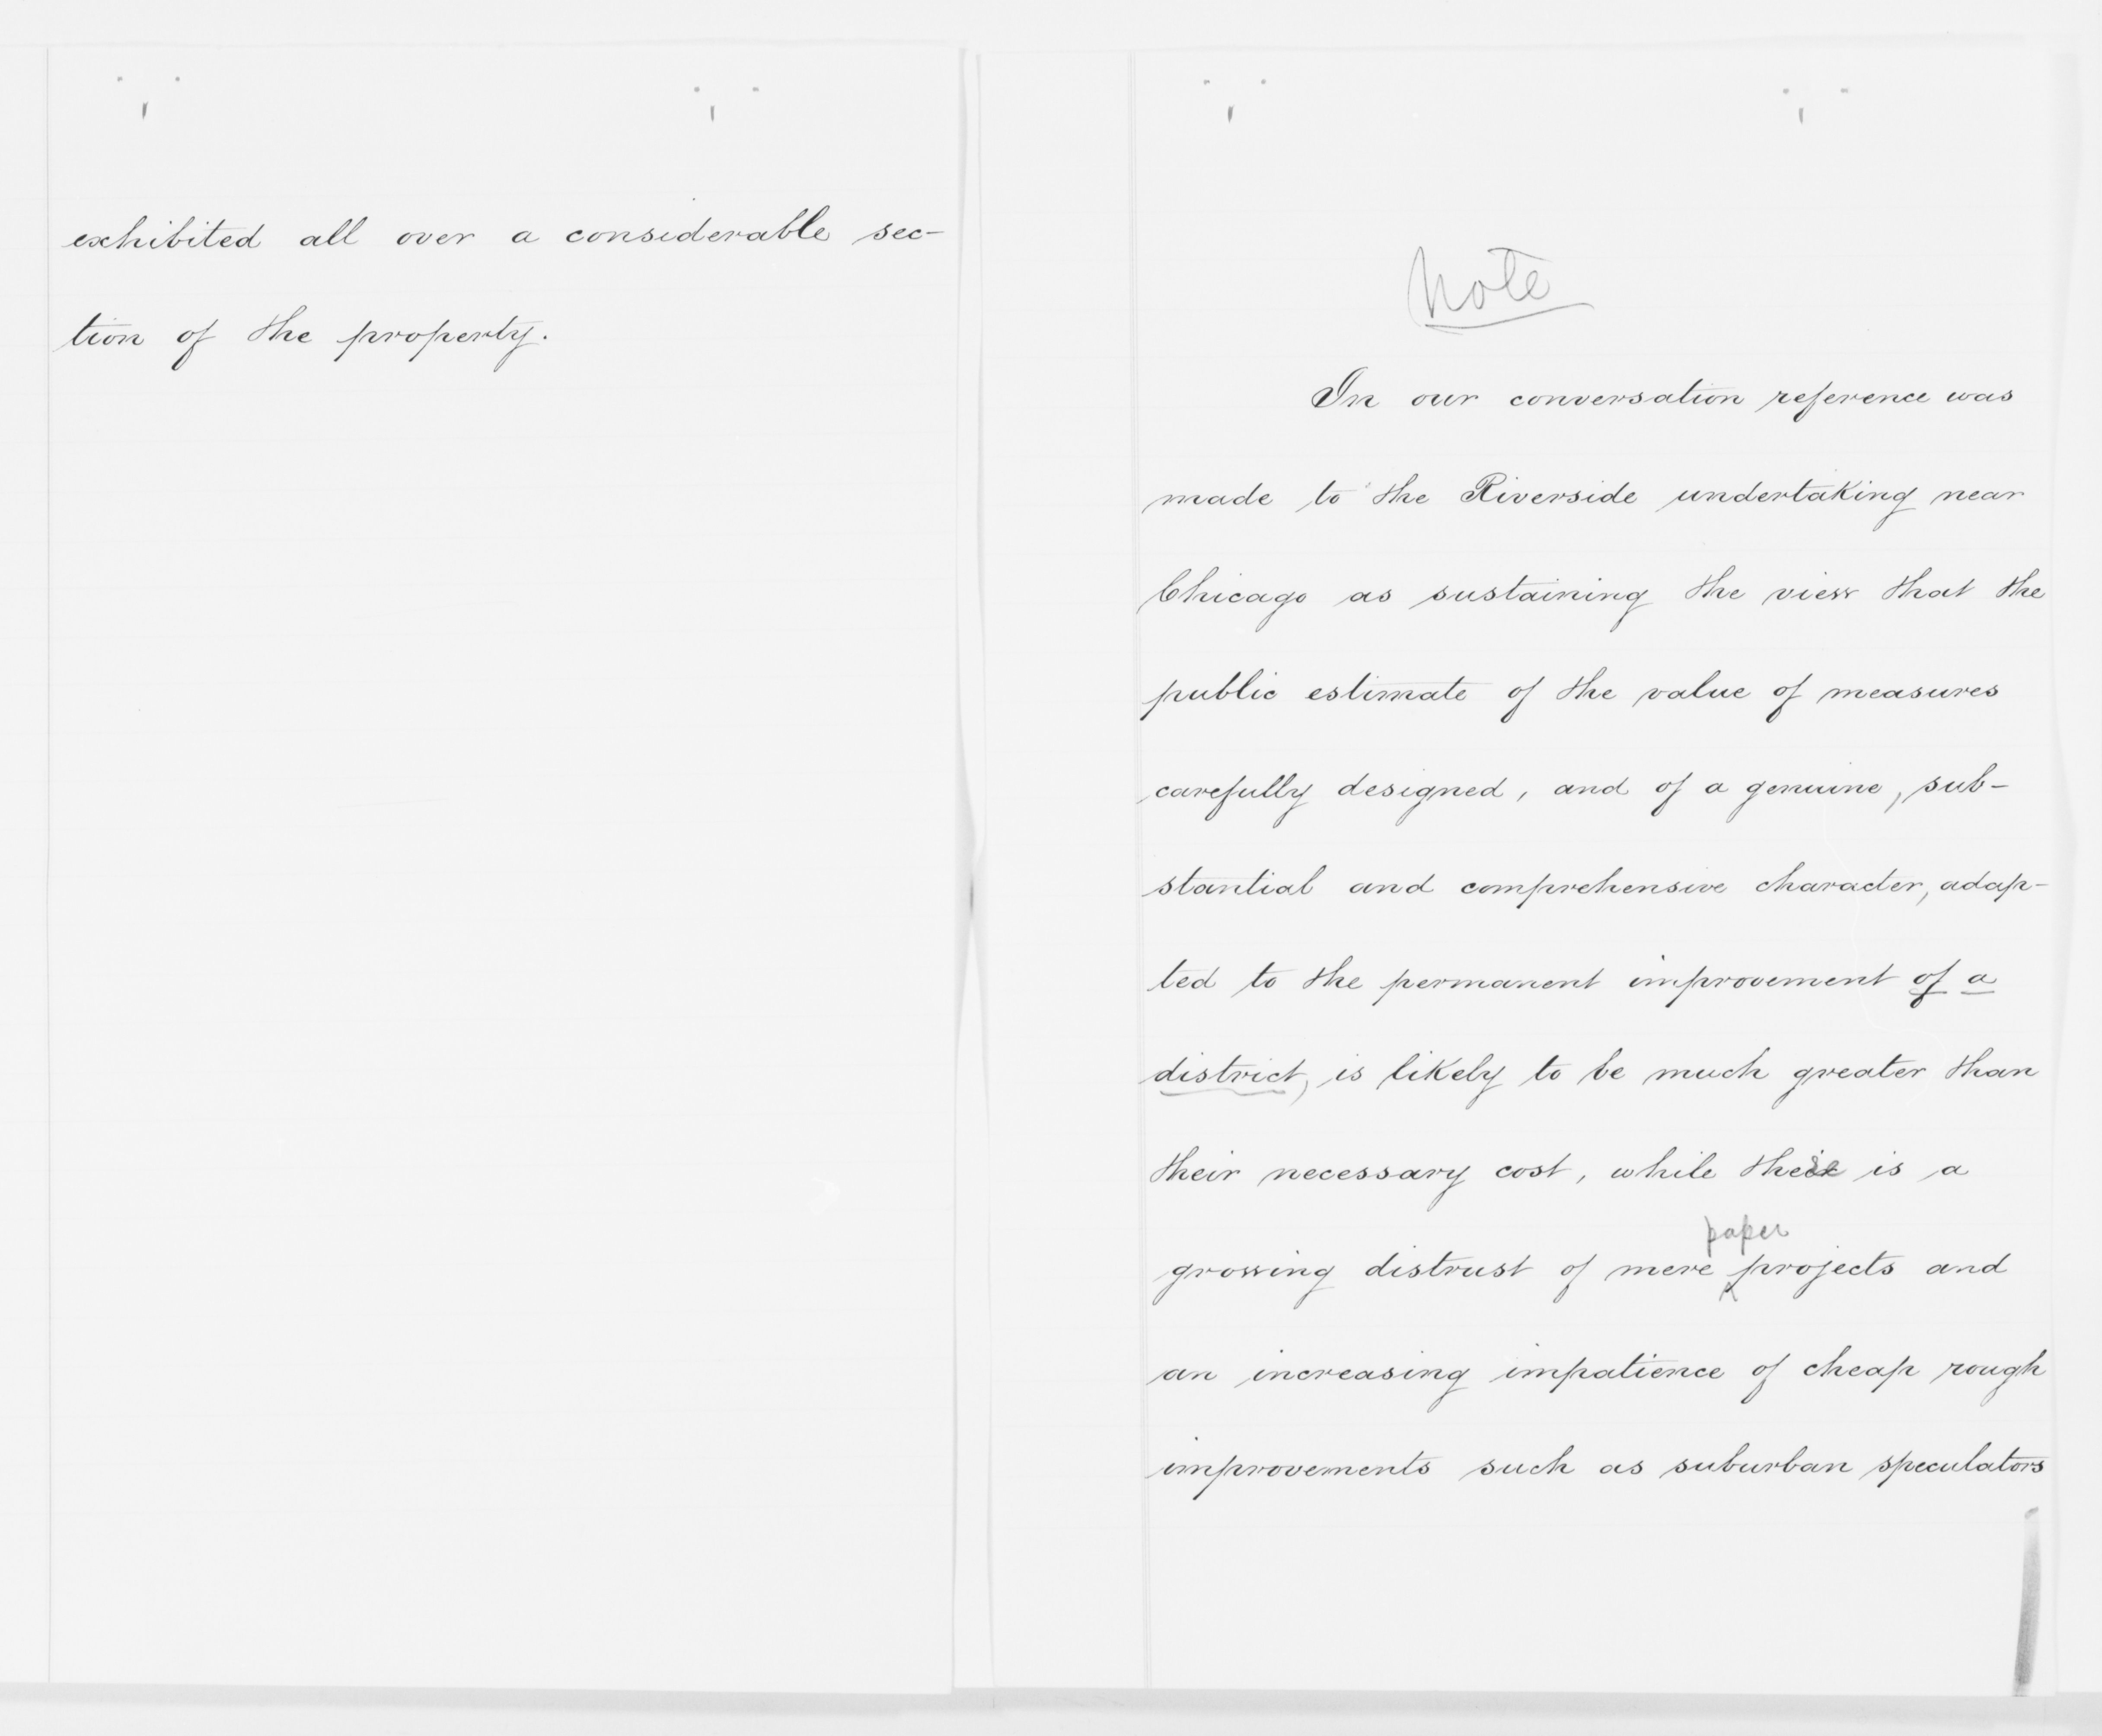 exhibited all over a considerable sec-
tion of the property.
Note
In our conversation reference was
made to the Riverside undertaking near
Chicago as sustaining the view that the
public estimate of the value of measures
carefully designed, and of a genuine, sub-
stantial and comprehensive character, adap-
ted to the permanent improvement of a
district, is likely to be much greater than
their necessary cost, while there is a
paper
growing distrust of mere projects and
an increasing impatience of cheap rough
improvements such as suburban speculators